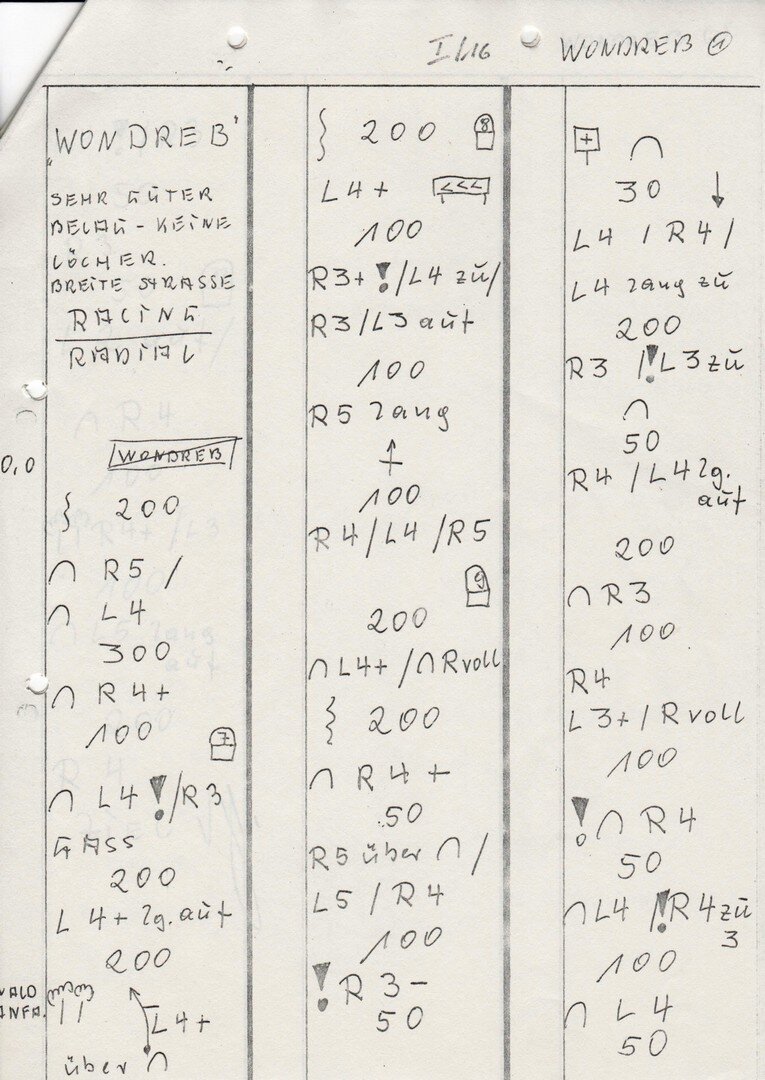 I/16 WONDREB 1
"WONDREB"
SEHR GUTER
BELAG - KEINE
LÖCHER.
BREITE STRASSE
RACING
RADIAL
0,0 WONDREB
200
∩ R5 /
∩ L4
300
∩ R4+
100
7
∩ L4 ! /R3
GASS
200
L 4+ lg. auf
200
WALD
ANFA.
L4+
über ∩
200 8
L4+ <<<
100
R3+ ! /L4 zu/
R3/L3 auf
100
R5 lang
100
R4/L4/R5
9
200
∩ L4+ /∩ R voll
200
∩ R4+
50
R5 über ∩ /
L5 / R4
100
! R 3-
50
+ ∩
30 ↓
L4 / R4/
L4 lang zu
200
R3 /! L3 zu
∩
50
R4 / L4 lg.
auf
200
∩ R3
100
R4
L3+/ R voll
100
! ∩ R4
50
∩ L4 /! R4 zu
3
100
∩ L4
50